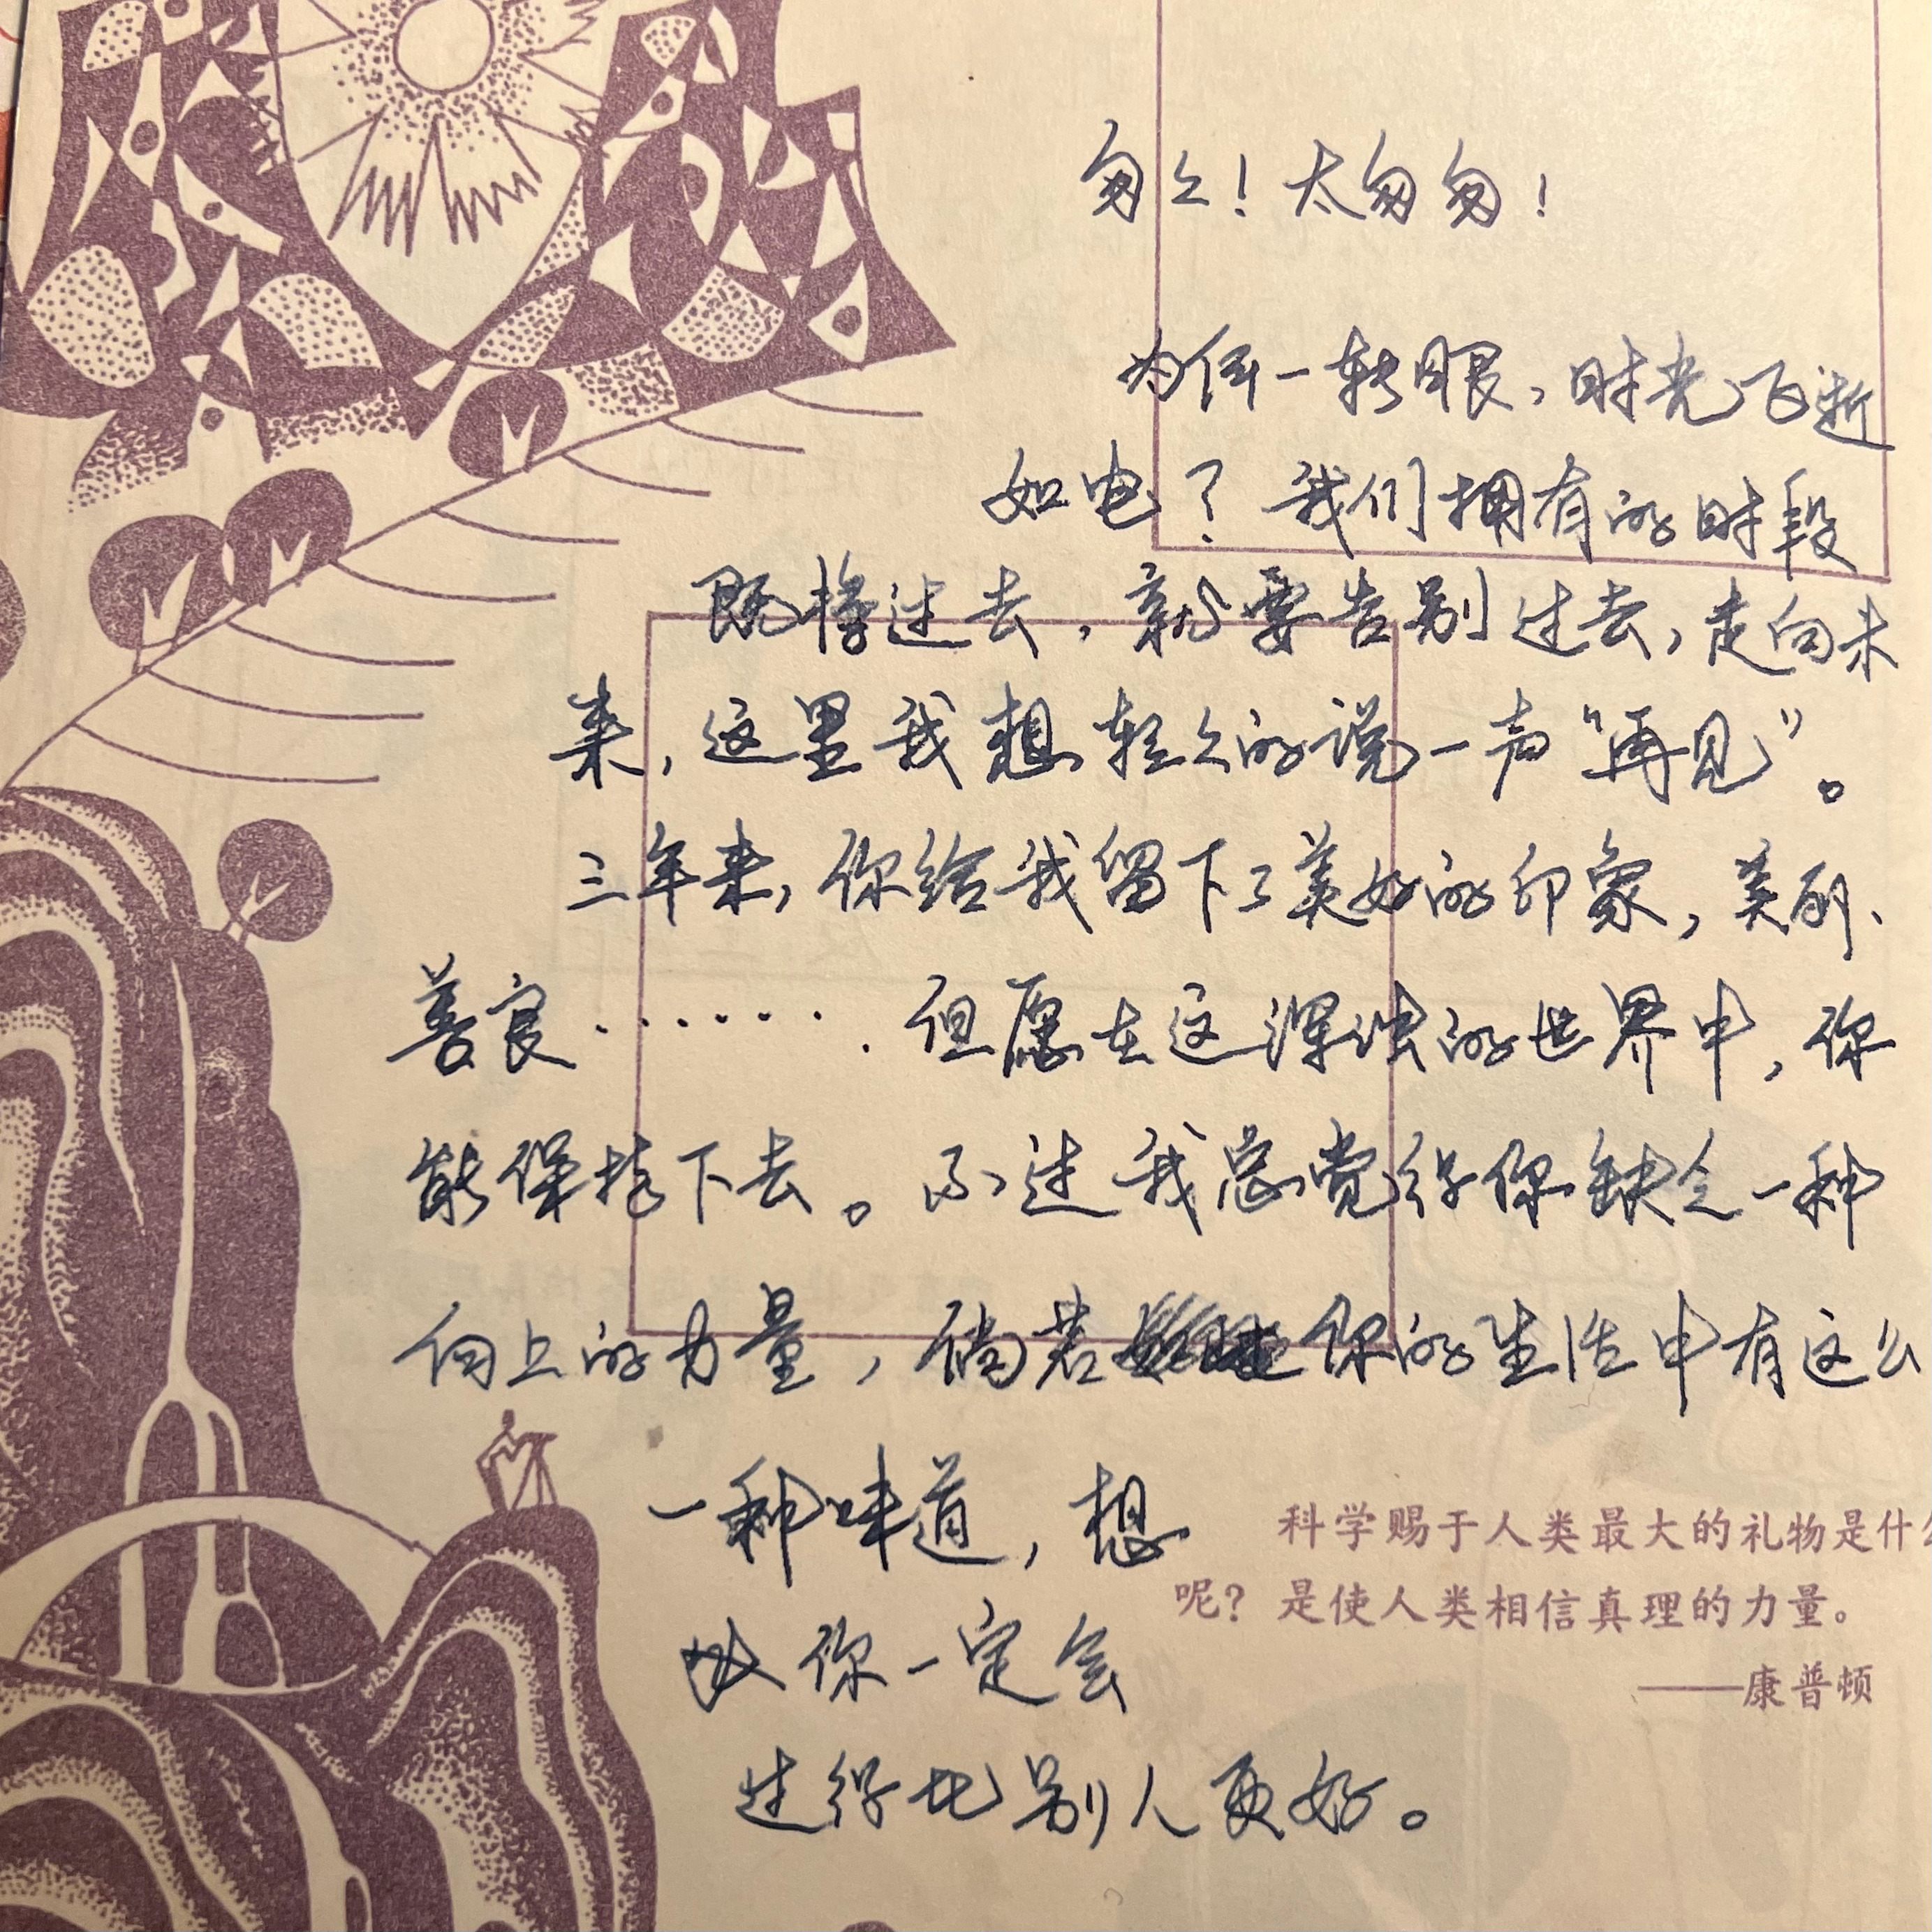 匆々！太匆匆！
为何一转眼，时光飞逝
如电？我们拥有的时段
既将过去，就要告别过去，走向未
来，这里我想轻々的说一声“再见”。
三年来，你给我留下了美好的印象，美丽、
善良……. 但愿在这浑浊的世界中，你
能保持下去。不过我总觉得你缺乏一种
向上的力量，倘若你的生活中有这么
一种味道，想
你一定会
过得比别人更好。
科学赐于人类最大的礼物是什么
呢？是使人类相信真理的力量。
——康普顿